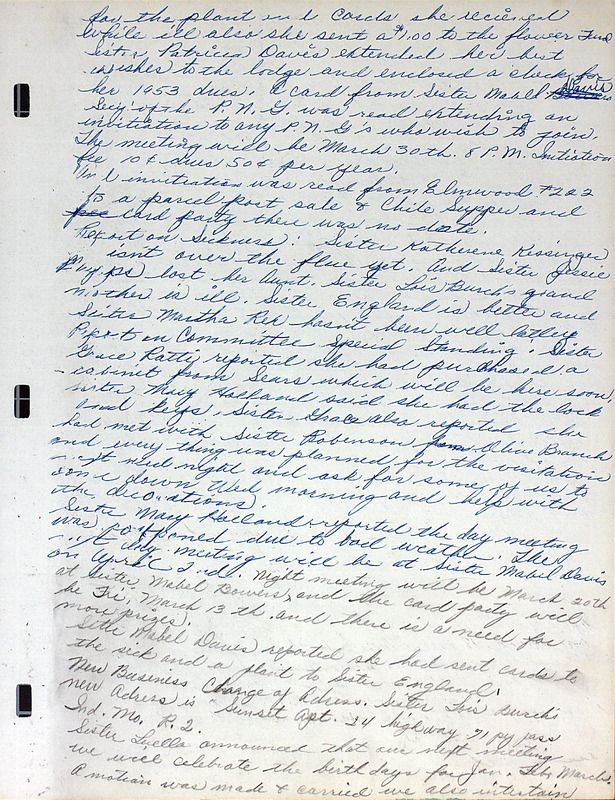 for the plant and cards she recieved
While ill also she sent a $1.00 to the flower Fund
Sister Patricia Davis extended her best
wishes to the lodge and enclosed a check for
her 1953 dues. A card from Sister Mabel Davis
Sec'y of the P.N.G. was read extending an
invitation to any P.N.G's who wish to join.
The meeting will be March 30th. 8 P.M. Initiation
fee 10¢ dues 50¢ per year.
An invitation was read from Elmwood #202
to a parcel post sale & Chile Supper and
Card party there was no date.
Report on Sickness: Sister Katherene Kissinger
isnt over the flue yet. And Sister Jessie
lost her Aunt. Sister Lois Burch's grand
mother is ill. Sister England is better and
Sister Martha Rex hasn't been well latley
Report on Committee Special Standing: Sister
Grace Ratti, reported she had purchased a
cabinet from Sears which will be here soon,
Sister Mary Holland said she had the lock
and keys. Sister Grace also reported she
had met with Sister Robenson from Olive Branch
and every thing was planned for the visitation
next Wed night and ask for some of us to
come down Wed morning and help with
the decorations
Sister Mary Holland reported the day meeting
was postponed due to bad weather. The
next day meeting will be at Sister Mabel Davis
on April 2nd. Night meeting will be March 20th
at Sister Mabel Bowers, and the card party will
be Fri. March 13th. and there is a need for
more prizes.
Sister Mabel Davis reported she had sent cards to
the sick and a plant to Sister England.
New Business Change of Adress. Sister Iris Burch's
new Adress is "Sunset Apt. 24 highway 71 by pass
Ind. Mo. R.2.
Sister Luella announced that our next meeting
we will celebrate the birthdays for Jan. Feb, March.
A motion was made & carried we also intertain